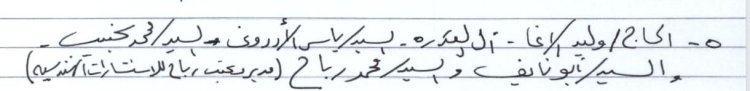 ٥- الحاج/ وليد الاغا - آل العكره - السيد/ ياسر الأردوغى - السيد/ محمد نجيب -
والسيد/ أبو نايف والسيد/ محمد رباح (مدير مكتب رباح للاستشارات الهندسية)